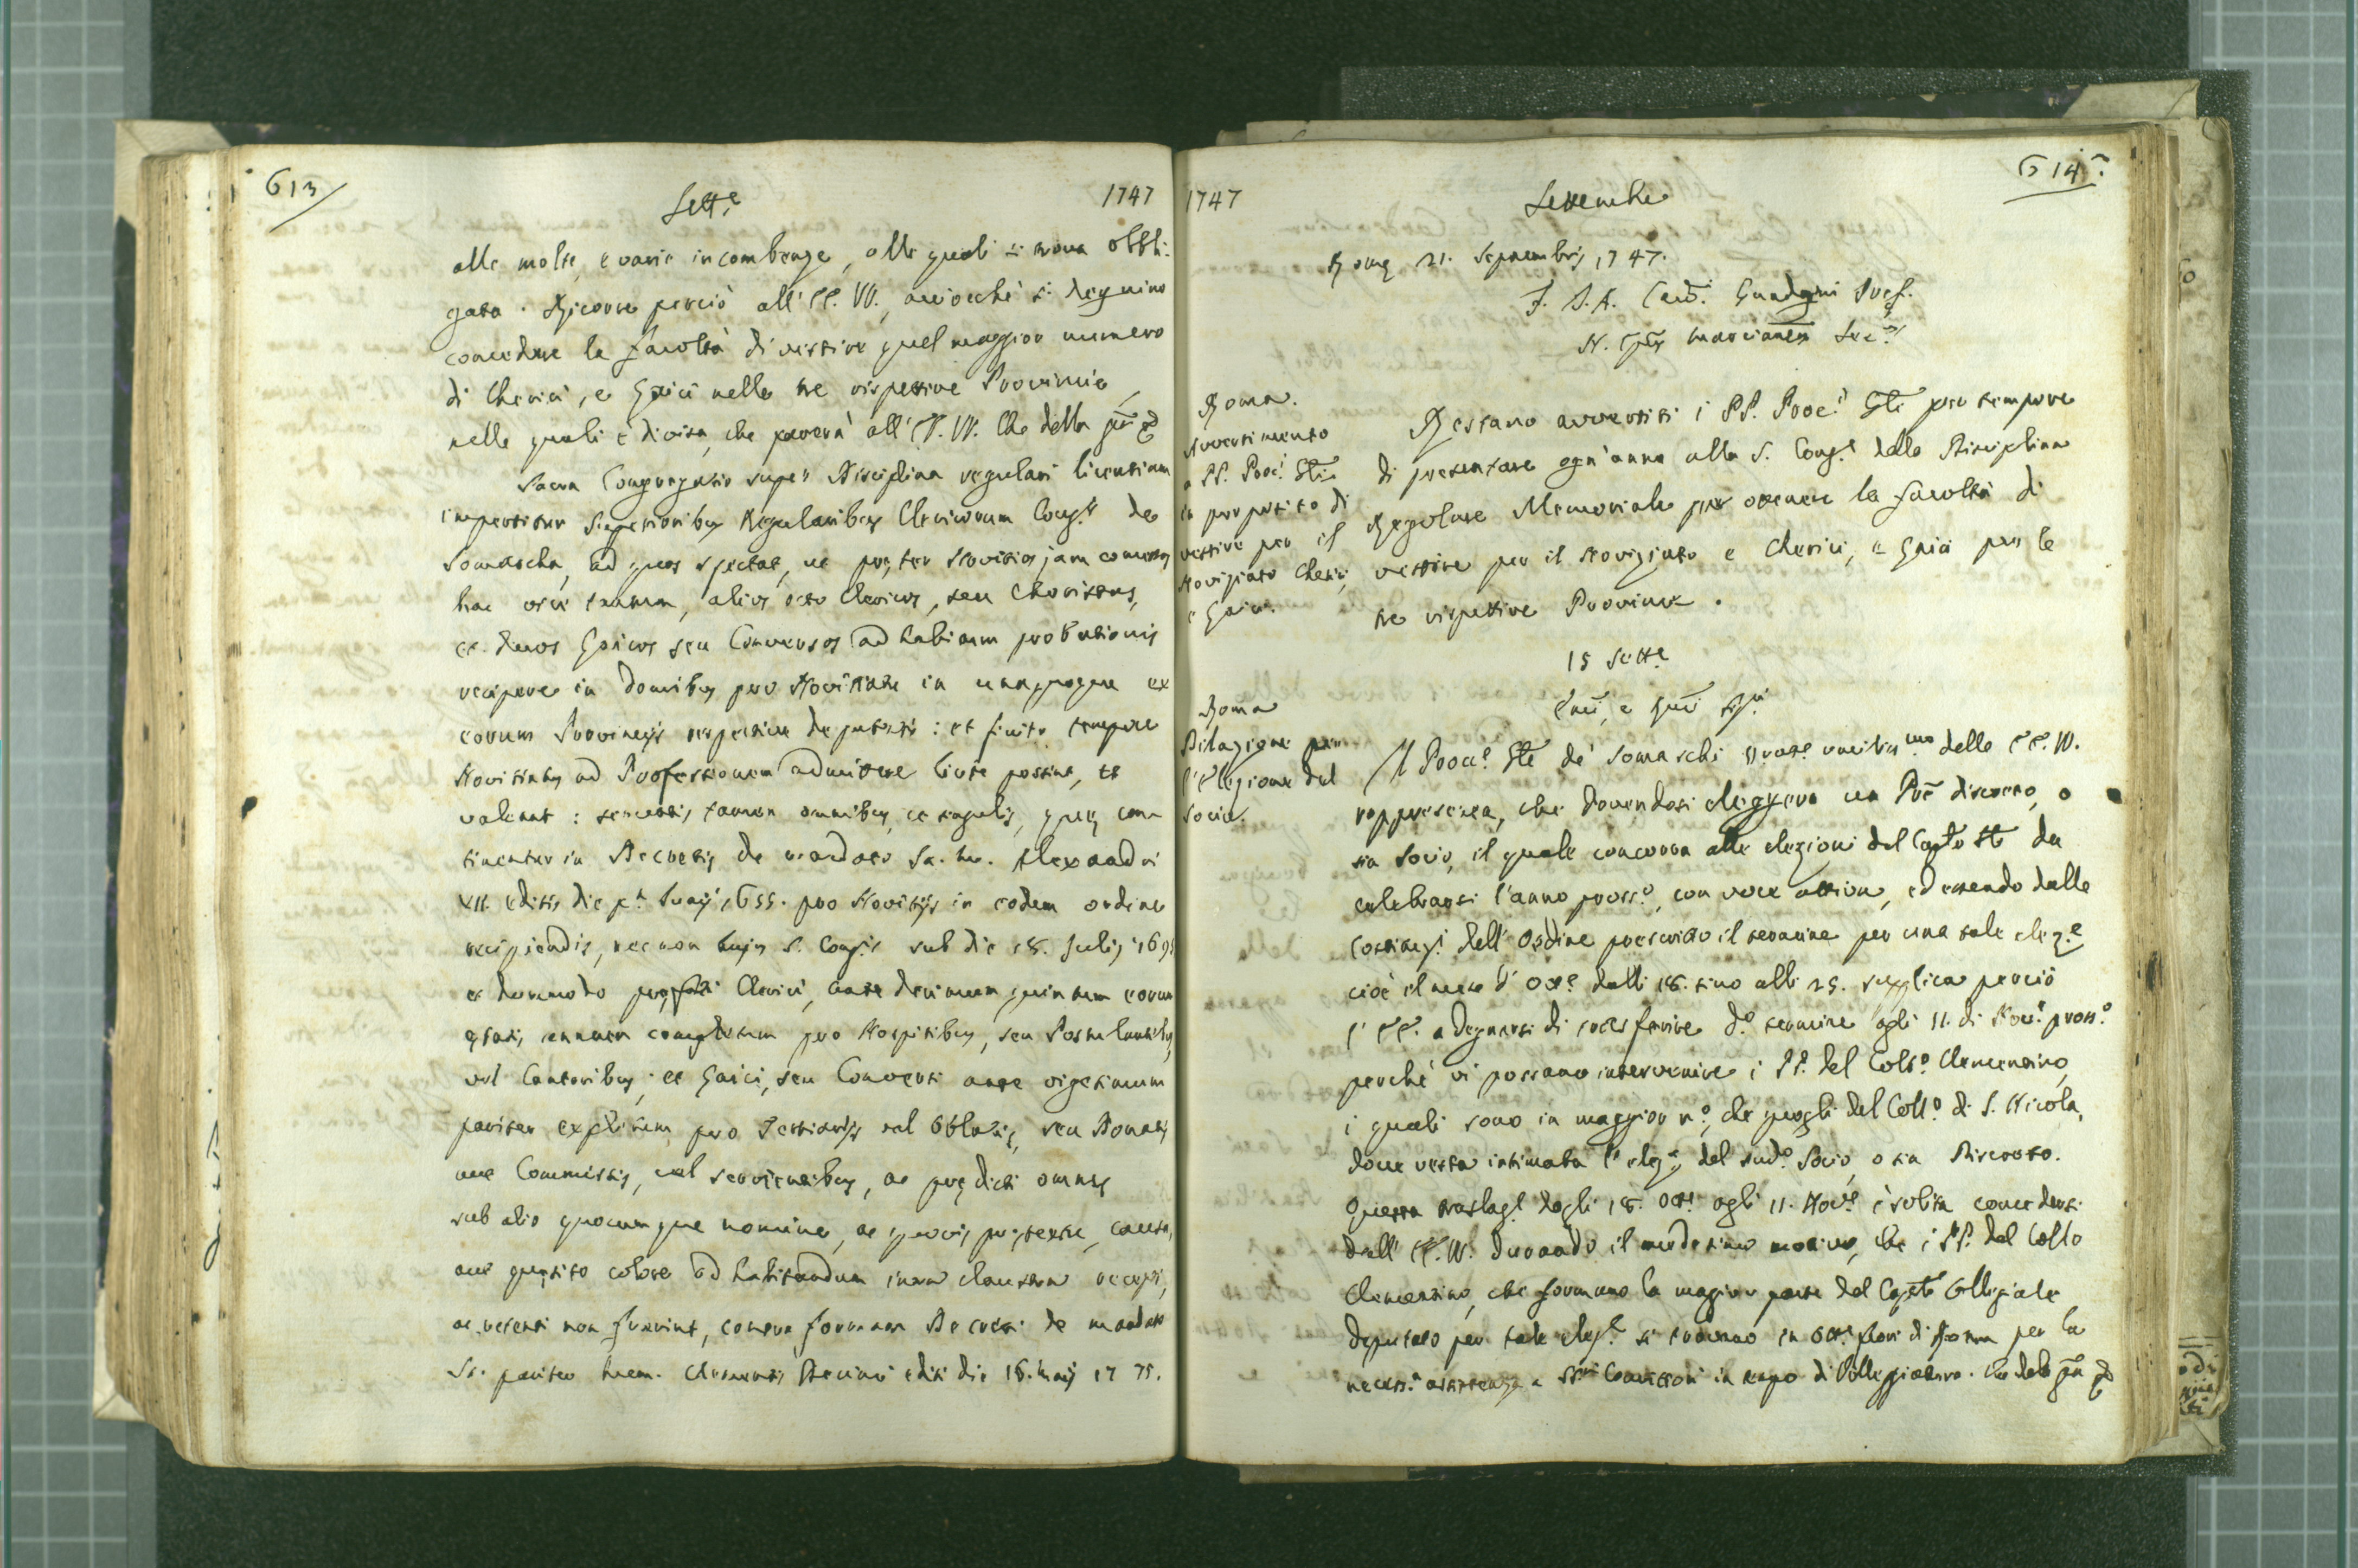 613
Sett.e 1747
alle molte, e varie incombenze, alle quali si trova obbli-
gata. Ricorre perciò all' EE. VV., acciocchè si degnino
concedere la facoltà di vestire quel maggior numero
di Cherici, e Laici nelle tre rispettive Provincie,
nelle quali è divisa, che parerà all' EE. VV. Che della
Sacra Congregatio super Disciplina regulari licentiam
impertitur Superioribus Regularibus Clericorum Cong.is de
Somascha, ad quos spectat, ut præter Novitios jam
hac vice tantum, alios octo Clericos, seu Choristas,
et duos Laicos seu Conversos ad habitum probationis
recipere in domibus pro Novitiatu in unaquaque ex
eorum Provincijs respective deputatis: et finito tempore
Novitiatus ad Professionem admittere licite possint, et
valeant: servatis tamen omnibus, et singulis, quæ con-
tinentur in Decretis de mandato Sa. Me. Alexandri
VII. editis die p.a 1655. pro Novitijs in eodem ordine
recipiendis, necnon hujus S. Cong.is sub die 18. Julij 169
et dummodo Clerici, ante decimum quintum eorum
ætatis annum completum pro Hospitibus, seu Postulantibus,
vel Cantoribus; et Laici, seu Conversi ante vigesimum
pariter expletum pro Tertiarijs vel Oblatis, seu Donatis
aut Commissis, vel servientibus, ac prædicti omnes
sub alio quocumque nomine, ac quovis prætextu, causa,
aut quæsito colore ad habitandum intra claustra recepti,
ac retenti non fuerint, contra formam Decreti de mandato
Sa. pariter mem. Clementis Decimi editi die 16. Maij 17 75.
614
1747 Settembre
Romæ 21. Septembris 1747.
F. J. A. Card. Guadagni Præf.
Sec.s
Roma.
Avvertimento
a PP. Proc.i G.li
in proposito di
vestire per il
Noviziato Cherici,
e Laici.
Restano avvertiti i PP. Proc.i G.li pro tempore
di presentare ogn'anno alla S. Cong.e della Disciplina
Regolare Memoriale per ottenere la facoltà di
vestire per il Noviziato e Cherici, e Laici per le
tre rispettive Provincie.
15 Sett.e
Roma
Dilazione per
l'Elezione del
Socio.
Il Proc.e G.le de' Somaschi Orat.e umilis.mo delle EE. VV.
rappresenta, che dovendosi eleggere un P're discreto, o
sia Socio, il quale concorra alle elezioni del Cap.to G.le da
celebrarsi l'anno pross.o, con voce attiva, ed essendo dalle
Costituz.i dell' Ordine prescritto il termine per una tale elez.e
cioè il mese d' Ott.e dalli 18. sino alli 25. supplica perciò
l' EE. a degnarsi di trasferire d.o termine agli 11. di Nov.e pross.o
perchè vi possano intervenire i PP. del Coll.o Clementino,
i quali sono in maggior n.o, che quegli del Coll.o di S. Nicola,
dove resta intimata l' elez.e del sud.o Socio, o sia Discreto.
Questa traslaz.e dagli 18. Ott.e agli 11. Nov.e è solita concedersi
dall' EE. VV. durando il medesimo motivo, che i PP. del Coll.o
Clementino, che formano la maggior parte del Cap.to Collegiale,
deputato per tale elez.e si trovano in Ott.e fuori di Roma per la
necess.a assistenza a Conv.ttori in tempo di Villeggiatura. Che della